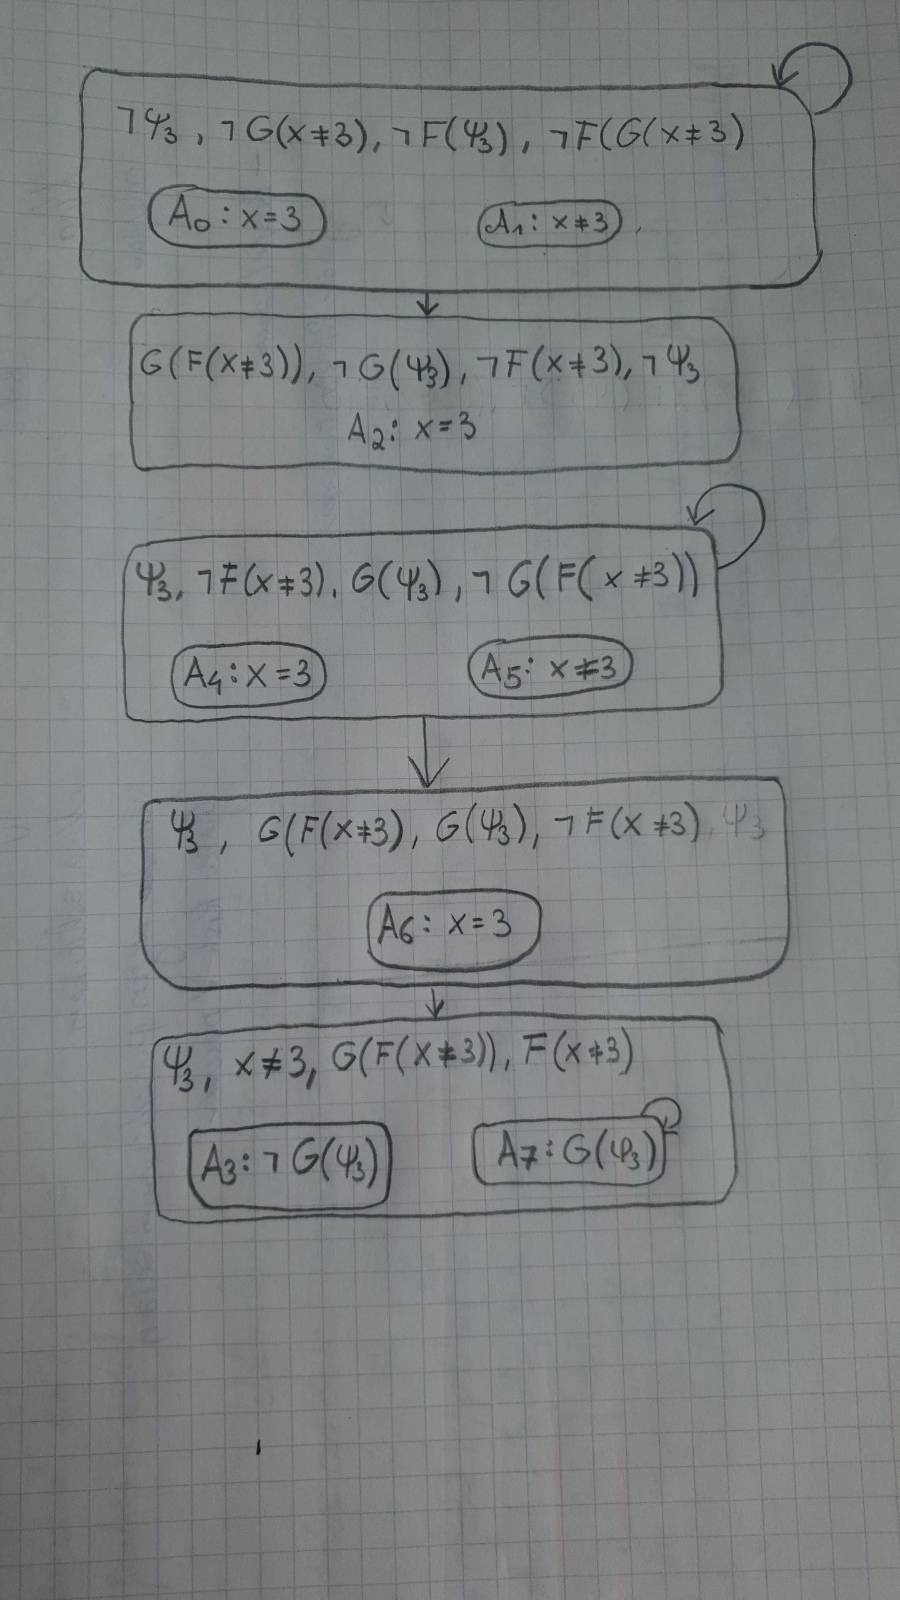 ¬Ψ₃, ¬G(x≠3), ¬F(Ψ₃), ¬F(G(x≠3)
A₀: x=3 A₁: x≠3
G(F(x≠3)), ¬G(Ψ₃), ¬F(x≠3), ¬Ψ₃
A₂: x=3
Ψ₃, ¬F(x≠3), G(Ψ₃), ¬G(F(x≠3))
A₄: x=3 A₅: x≠3
Ψ₃, G(F(x≠3), G(Ψ₃), ¬F(x≠3), Ψ₃
A₆: x=3
Ψ₃, x≠3, G(F(x≠3)), F(x≠3)
A₃: ¬G(Ψ₃) A₇: G(Ψ₃)